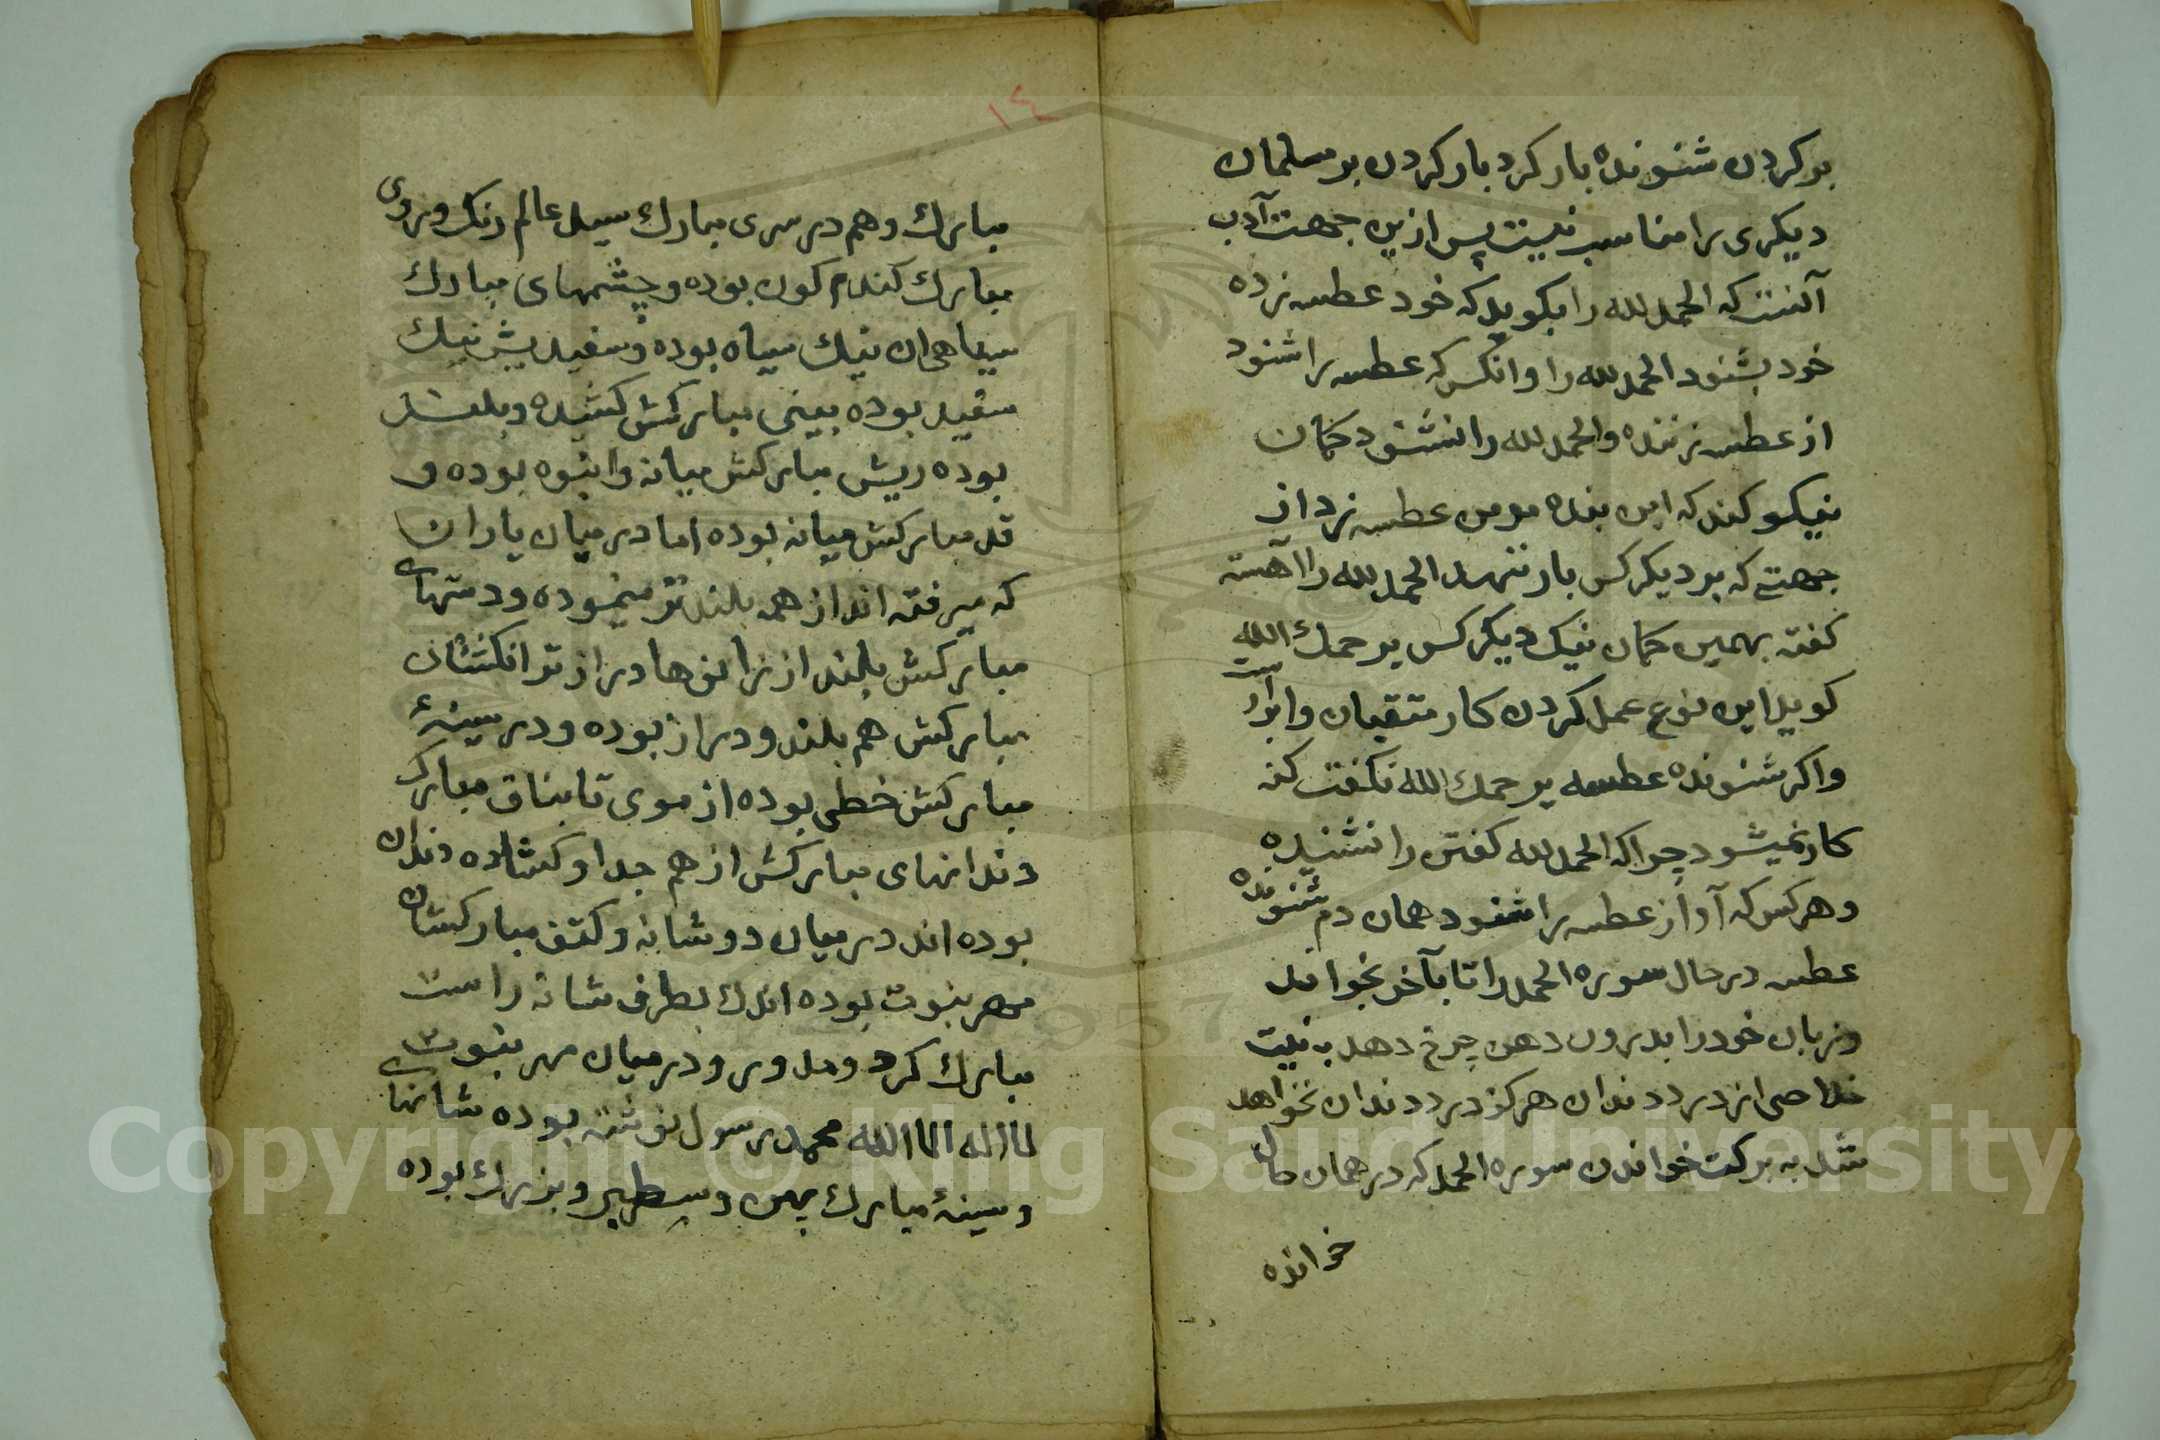 بر کردن شنونده بار کرد بار کردن بر مسلمان
دیکری را مناسب نیست پس ازین جهت آدب
آنست که الحمد لله را بکوید که خود عطسه زده
خود بشنود الحمد لله را و انکس که عطسه را شنود
از عطسه زننده و الحمد لله را نشنود کمان
نیکو کند که این بنده مومن عطسه زد از
جهتے که بر دیکر کس بار ننهد الحمد لله را آهسته
کفته بهمین کمان نیک دیکر کس یرحمک الله
کوید این نوع عمل کردن کار متقیان و ابرار است
و اکر شنونده عطسه یرحمک الله نکفت کنه
کار نمیشود چرا که الحمد لله کفتن را نشنیده
و هر کس که آواز عطسه را شنود همان دم شنونده
عطسه در حال سوره الحمد را تا بآخر بخواند
و زبان خود را بدرون دهن چرخ دهد به نیت
خلاصی از درد دندان هرکز درد دندان نخواهد
شد به برکت خواندن سوره الحمد که در همان حال
خوانده
١٤
مبارک و هم در سری مبارک سید عالم رنک و روی
مبارک کندم کون بوده و چشمهای مبارک
سیاهی ان نیک سیاه بوده و سفیدیش نیک
سفید بوده بینی مبارکش کشیده و بلند
بوده ریش مبارکش میانه و انبوه بوده و
قد مبارکش میانه بوده اما در میان یاران
که میرفته اند از همه بلند تر مینموده و دستهای
مبارکش بلند از زانوها دراز تر انکشتان
مبارکش هم بلند و دراز بوده و در سینهٔ
مبارکش خطی بوده از موی تا بناف مبارک
دندانهای مبارکش از هم جدا و کشاده دندان
بوده اند در میان دو شانه و کتف مبارکشان
مهر نبوت بوده اندک بطرف شانه راست
مبارک کرد و مدور و در میان مهر نبوت
لا اله الا الله محمد رسول نوشته بوده شانهای
و سینهٔ مبارک پهن و سطبر و بزرک بوده
Copyright © King Saud University
1957